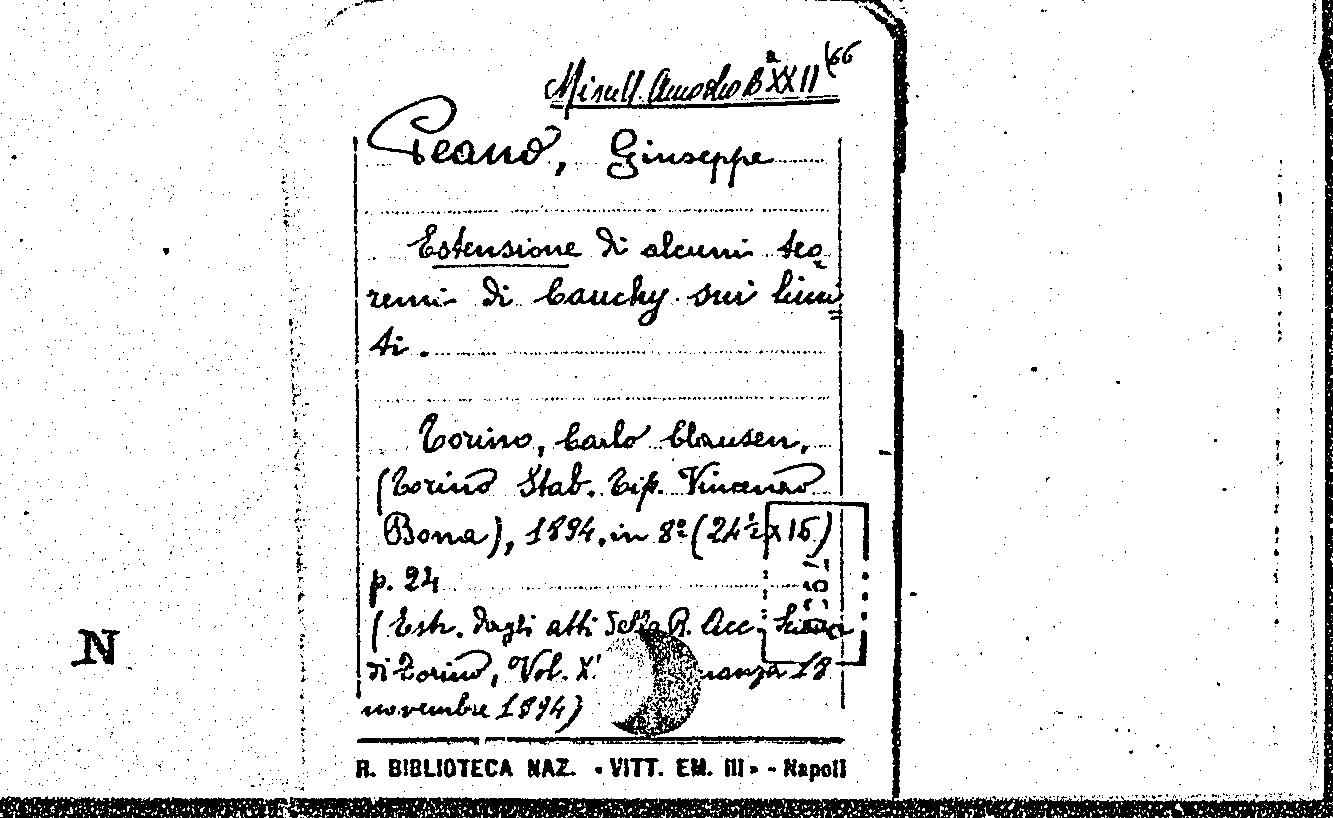 Miscell. Amodeo Bª XXII (66
Peano, Giuseppe
Estensione di alcuni teo
remi di Cauchy sui limi
ti.
Torino, Carlo Clausen,
(Torino Stab. Tip. Vincenzo
Bona), 1894, in 8º (24½ x 16)
p. 24
(Estr. dagli atti della R. Acc.
di Torino, Vol. nanza 18
novembre 1894)
N
R. BIBLIOTECA NAZ. « VITT. EM. III » - Napoli